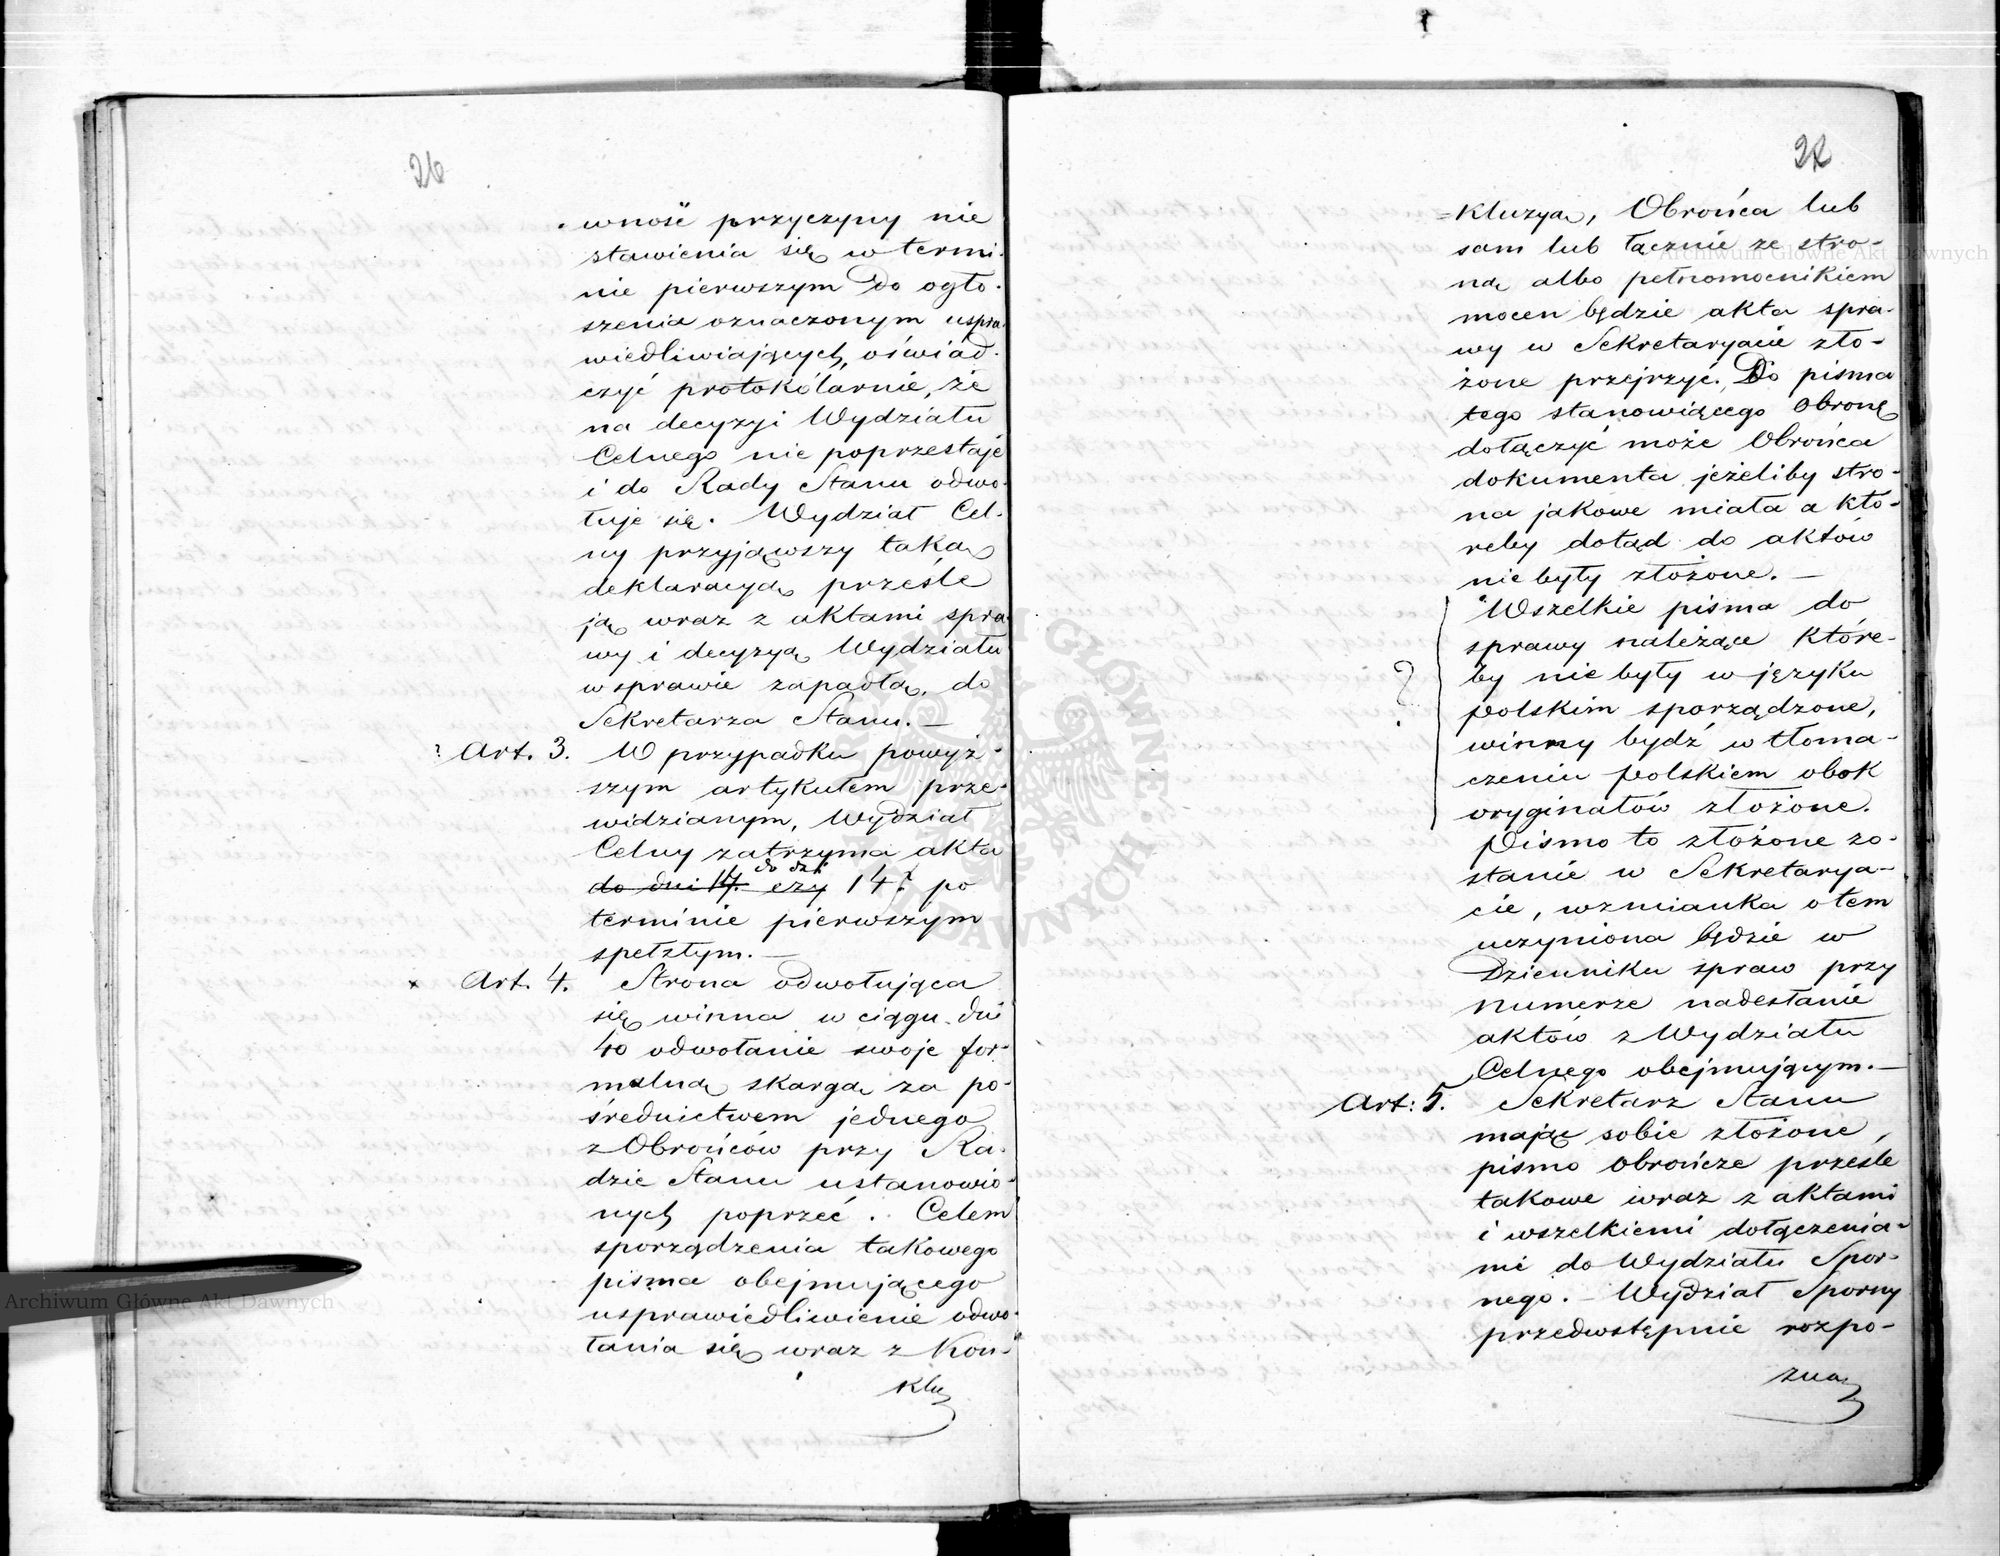 26
wność przyczyny nie
stawienia się w termi-
nie pierwszym do ogło-
szenia oznaczonym uspra-
wiedliwiających, oświad-
czyć protokólarnie, że
na decyzyi Wydziału
Celnego nie poprzestaje
i do Rady Stanu odwo-
łuje się. Wydział Cel-
ny przyjąwszy taką
deklaracyą prześle
ją wraz z aktami spra-
wy i decyzyą Wydziału
w sprawie zapadłą, do
Sekretarza Stanu. —
? Art. 3. W przypadku powyż-
szym artykułem prze-
widzianym, Wydział
Celny zatrzyma akta
do dni
do dni 14. czy 14? po
terminie pierwszym
spełzłym. —
x Art. 4. Strona odwołująca
się winna w ciągu dni
40 odwołanie swoje for-
malną skargą za po-
średnictwem jednego
z Obrońców przy Ra-
dzie Stanu ustanowio-
nych poprzeć. Celem
sporządzenia takowego
pisma obejmującego
usprawiedliwienie odwo-
łania się wraz z Kon-
klu
=kluzyą, Obrońca lub
sam lub łącznie ze stro-
ną albo pełnomocnikiem
mocen będzie akta spra-
wy w Sekretaryacie zło-
żone przejrzyć. Do pisma
tego stanowiącego obronę
dołączyć może Obrońca
dokumenta jeżeliby stro-
na jakowe miała a któ-
reby dotąd do aktów
nie były złożone. —
Wszelkie pisma do
sprawy należące które-
by nie były w języku
?
polskim sporządzone,
winny bydź w tłoma-
czeniu polskiem obok
oryginałów złożone.
Pismo to złożone zo-
stanie w Sekretarya-
cie, wzmianka o tem
uczyniona będzie w
Dzienniku spraw przy
Numerze nadesłanie
aktów z Wydziału
Celnego obejmującym. —
Art: 5. Sekretarz Stanu
mając sobie złożone,
pismo obrończe prześle
takowe wraz z aktami
i wszelkiemi dołączenia-
mi do Wydziału Spor-
nego. — Wydział Sporny
przedwstępnie rozpo-
zna
Archiwum Główne Akt Dawnych
Archiwum Główne Akt Dawnych